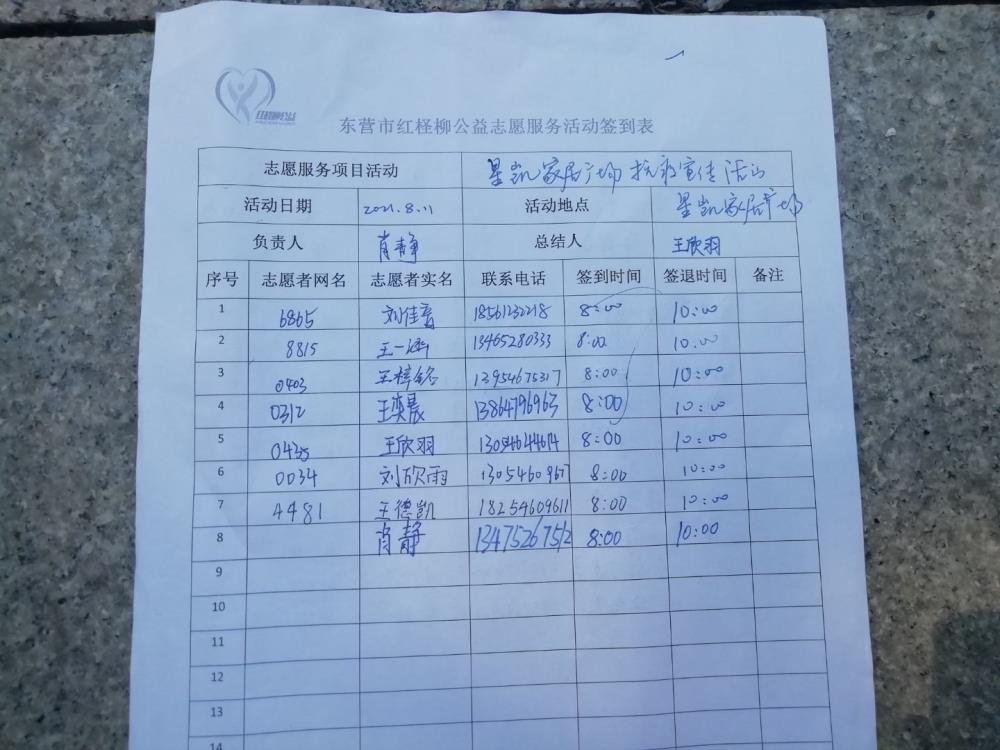 红柽柳公益
东营市红柽柳公益志愿服务活动签到表
志愿服务项目活动 星凯家居广场 抗疫宣传活动
活动日期 2021.8.11 活动地点 星凯家居广场
负责人 肖静 总结人 王欣羽
序号 志愿者网名 志愿者实名 联系电话 签到时间 签退时间 备注
1 6865 刘佳音 18561232218 8:00 10:00
2 8815 王一涵 13465280333 8:00 10:00
3 0403 王梓铭 13954675317 8:00 10:00
4 0312 王奕晨 13864796963 8:00 10:00
5 0435 王欣羽 13054644614 8:00 10:00
6 0034 刘欣雨 8:00 10:00
7 4481 王德凯 18254609611 8:00 10:00
8 肖静 13475267512 8:00 10:00
9
10
11
12
13
14